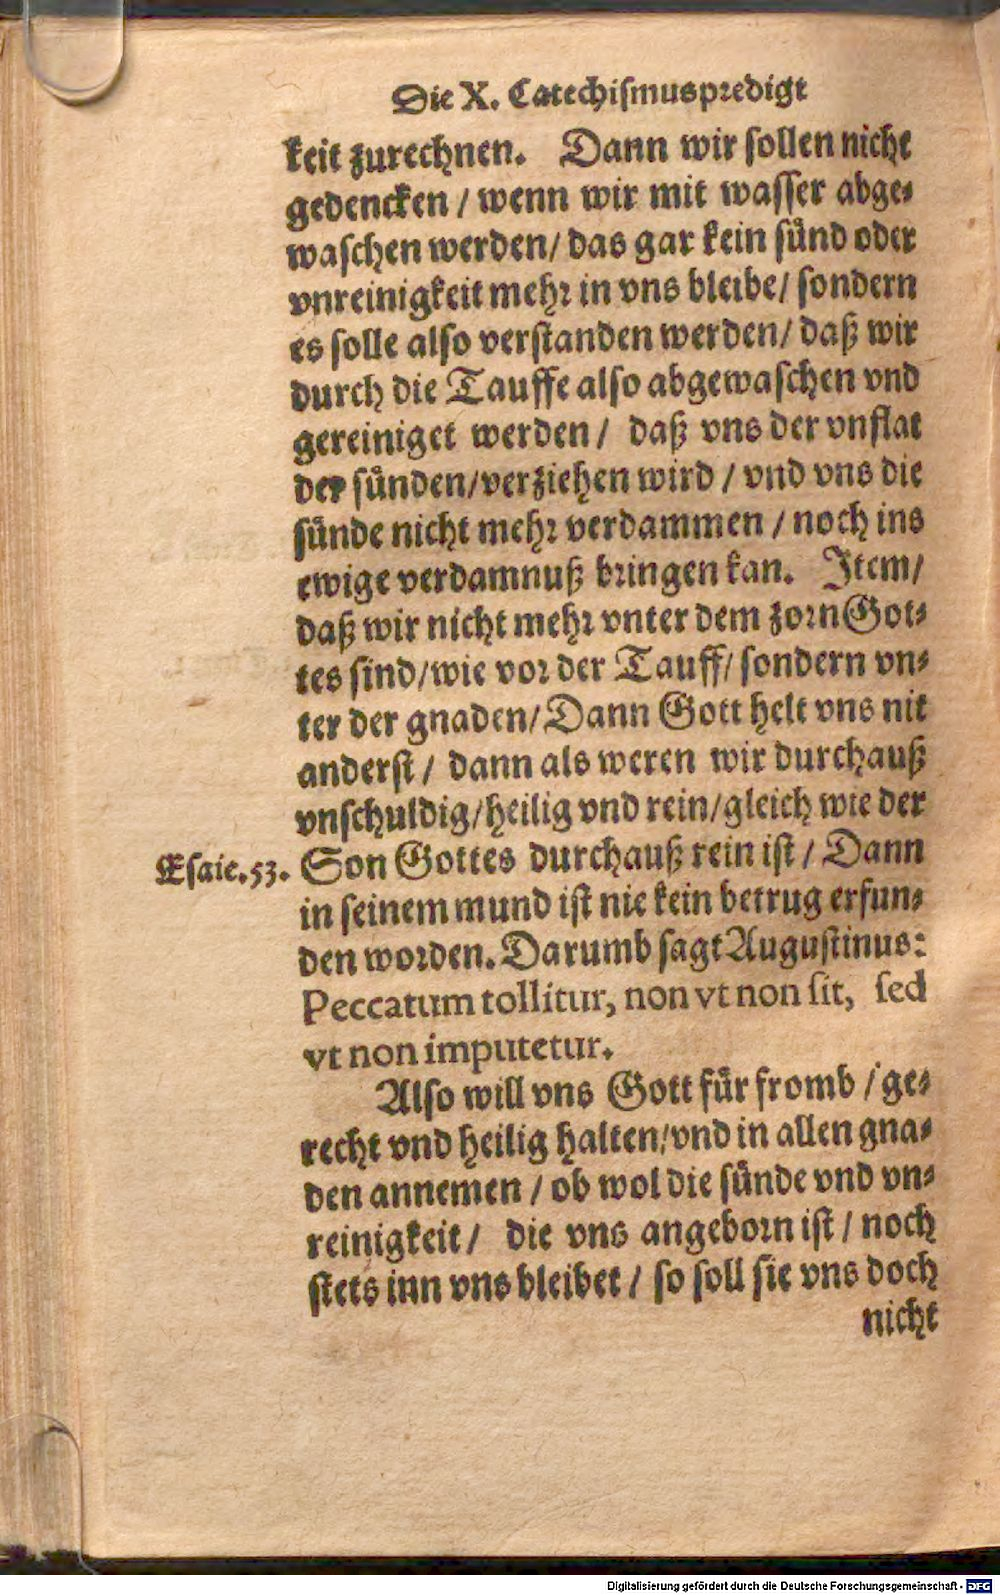 Die X. Catechismuspredigt
keit zurechnen. Dann wir sollen nicht
gedencken / wenn wir mit wasser abge-
waschen werden / das gar kein sünd oder
vnreinigkeit mehr in vns bleibe / sondern
es solle also verstanden werden / daß wir
durch die Tauffe also abgewaschen vnd
gereiniget werden / daß vns der vnflat
der sünden / verziehen wird / vnd vns die
sünde nicht mehr verdammen / noch ins
ewige verdamnuß bringen kan. Item /
daß wir nicht mehr vnter dem zorn Got-
tes sind / wie vor der Tauff / sondern vn-
ter der gnaden / Dann Gott helt vns nit
anderst / dann als weren wir durchauß
vnschuldig / heilig vnd rein / gleich wie der
Esaie. 53. Son Gottes durchauß rein ist / Dann
in seinem mund ist nie kein betrug erfun-
den worden. Darumb sagt Augustinus:
Peccatum tollitur, non vt non sit, sed
vt non imputetur.
Also will vns Gott für fromb / ge-
recht vnd heilig halten / vnd in allen gna-
den annemen / ob wol die sünde vnd vn-
reinigkeit / die vns angeborn ist / noch
stets inn vns bleibet / so soll sie vns doch
nicht
Digitalisierung gefördert durch die Deutsche Forschungsgemeinschaft - DFG